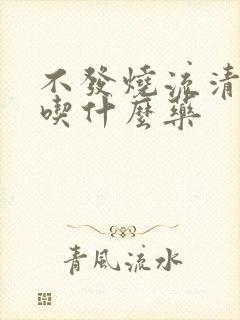 不發燒流清
喫什麼藥
青風流水